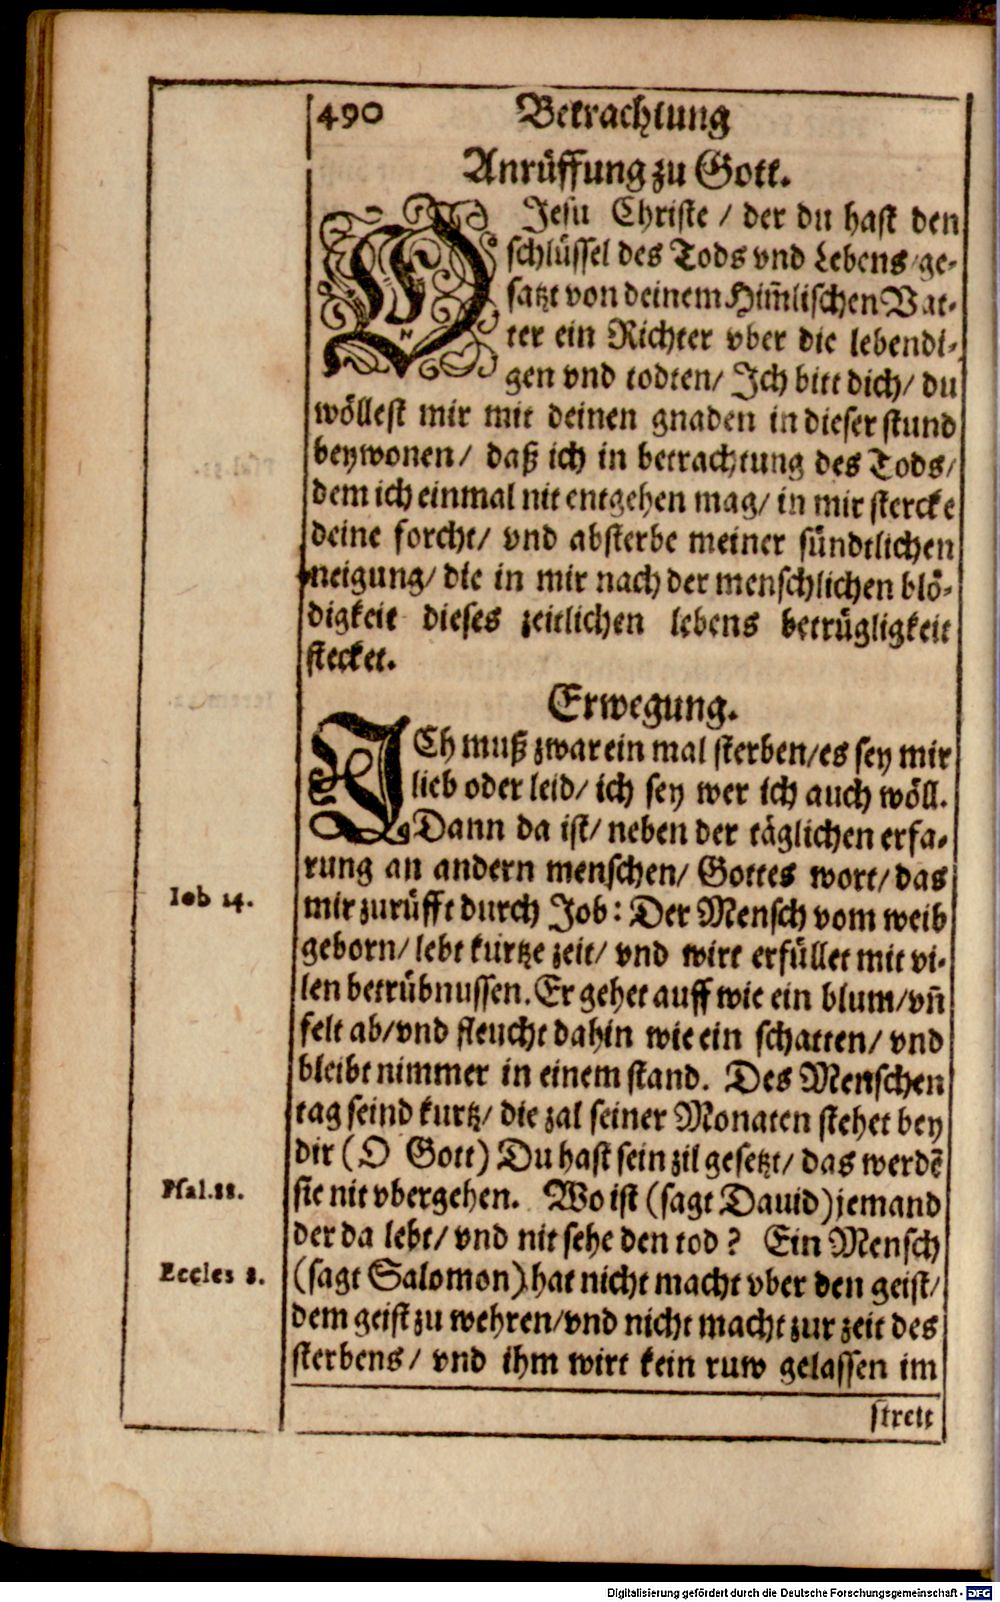 490 Betrachtung
Anrüffung zu Gott.
O Jesu Christe / der du hast den
schlüssel des Tods vnd Lebens / ge-
satzt von deinem Him̃lischen Vat-
ter ein Richter vber die lebendi-
gen vnd todten / Ich bitt dich / du
wöllest mir mit deinen gnaden in dieser stund
beywonen / daß ich in betrachtung des Tods /
dem ich einmal nit entgehen mag / in mir stercke
deine forcht / vnd absterbe meiner sündtlichen
neigung / die in mir nach der menschlichen blö-
digkeit dieses zeitlichen lebens betrügligkeit
stecket.
Erwegung.
ICh muß zwar ein mal sterben / es sey mir
lieb oder leid / ich sey wer ich auch wöll.
Dann da ist / neben der täglichen erfa-
rung an andern menschen / Gottes wort / das
Iob 14. mir zurüfft durch Job: Der Mensch vom weib
geborn / lebt kurtze zeit / vnd wirt erfüllet mit vi-
len betrübnussen. Er gehet auff wie ein blum / vñ
felt ab / vnd fleucht dahin wie ein schatten / vnd
bleibt nimmer in einem stand. Des Menschen
tag seind kurtz / die zal seiner Monaten stehet bey
dir (O Gott) Du hast sein zil gesetzt / das werdẽ
Psal. 88. sie nit vbergehen. Wo ist (sagt Dauid) jemand
der da lebt / vnd nit sehe den tod? Ein Mensch
Eccles 8. (sagt Salomon) hat nicht macht vber den geist /
dem geist zu wehren / vnd nicht macht zur zeit des
sterbens / vnd ihm wirt kein ruw gelassen im
streit
Digitalisierung gefördert durch die Deutsche Forschungsgemeinschaft - DFG